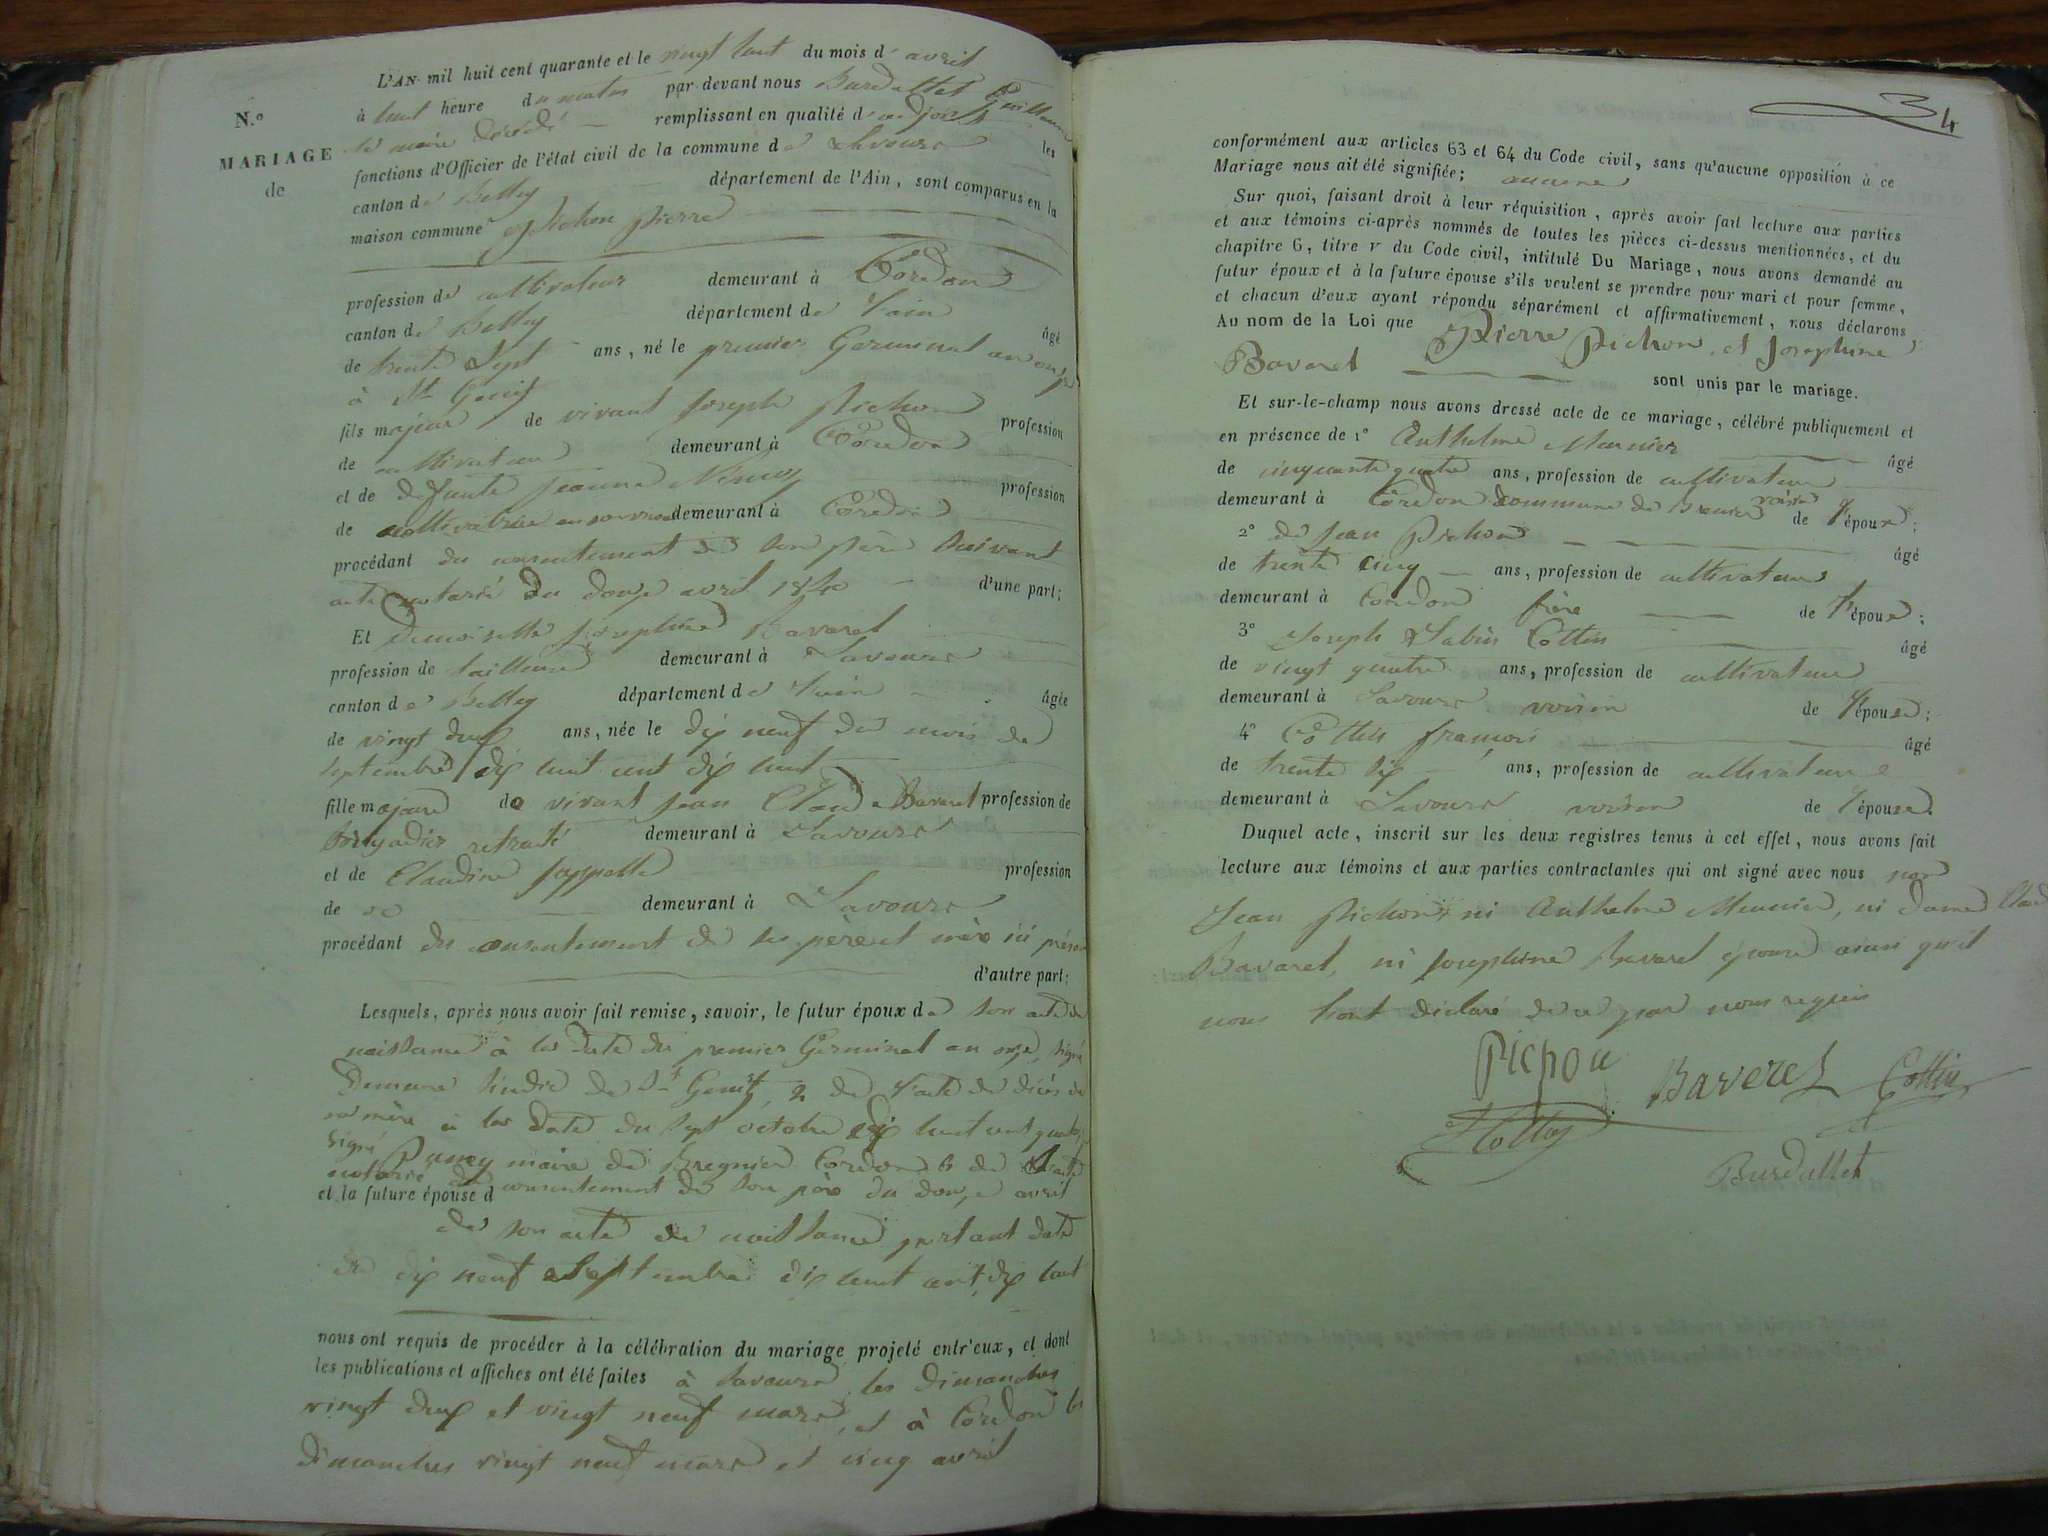 L'AN mil huit cent quarante et le vingt huit du mois d'avril
à huit heure du matin par devant nous Burdallet Guillaume
le maire décédé remplissant en qualité d'adjoint les
N.º
MARIAGE
de
fonctions d'Officier de l'état civil de la commune de Lavours
canton de Belley département de l'Ain, sont comparus en la
maison commune Pichon Pierre
profession de cultivateur demeurant à Cordon
canton de Belley département de l'ain
âgé
de trente sept ans, né le premier Germinal an onze
à St Genix
fils majeur de vivant Joseph Pichon profession
de cultivateur demeurant à Cordon
et de defunte Jeanne profession
de cultivatrice en son vivant demeurant à Cordon
procédant du consentement de son père suivant
acte notarié du douze avril 1840 d'une part;
Et Demoiselle Josephine Bavarel
profession de tailleuse demeurant à Lavours
canton de Belley département de l'ain âgée
de vingt deux ans, née le dix neuf du mois de
septembre dix huit cent dix huit
fille majeure de vivant Jean Claude Bavarel profession de
Brigadier retraité demeurant à Lavours
et de Claudine profession
de demeurant à Lavours
procédant du consentement de ses père et mère ici présen
d'autre part;
Lesquels, après nous avoir fait remise, savoir, le futur époux de son acte de
naissance à la date du premier Germinal an onze, signé
sindic de St Genix, 2 de l'acte de décès de
sa mère à la date du sept octobre dix huit cent
signé maire de Bregnier Cordon & de l'acte
notarié du consentement de son père du douze avril
et la future épouse d
de son acte de naissance portant date
du dix neuf Septembre dix huit cent dix huit
nous ont requis de procéder à la célébration du mariage projeté entr'eux, et dont
les publications et affiches ont été faites à Lavours les dimanches
vingt deux et vingt neuf mars, et à Cordon les
dimanches vingt neuf mars et cinq avril
34
conformément aux articles 63 et 64 du Code civil, sans qu'aucune opposition à ce
Mariage nous ait été signifiée; aucune
Sur quoi, faisant droit à leur réquisition, après avoir fait lecture aux parties
et aux témoins ci-après nommés de toutes les pièces ci-dessus mentionnées, et du
chapitre 6, titre v du Code civil, intitulé Du Mariage, nous avons demandé au
futur époux et à la future épouse s'ils veulent se prendre pour mari et pour femme,
et chacun d'eux ayant répondu séparément et affirmativement, nous déclarons
Au nom de la Loi que Pierre Pichon et Josephine
Bavarel sont unis par le mariage.
Et sur-le-champ nous avons dressé acte de ce mariage, célébré publiquement et
en présence de 1º Anthelme Meunier
âgé
de cinquante quatre ans, profession de cultivateur
demeurant à Cordon commune de Bregnier voisin de l'époux;
2º de Jean Pichon
âgé
de trente cinq ans, profession de cultivateur
demeurant à Cordon frère de l'époux;
3º Joseph Sabin Cottin
âgé
de vingt quatre ans, profession de cultivateur
demeurant à Lavours voisin de l'épouse;
4º Cottin françois
âgé
de trente six ans, profession de cultivateur
demeurant à Lavours voisin de l'épouse.
Duquel acte, inscrit sur les deux registres tenus à cet effet, nous avons fait
lecture aux témoins et aux parties contractantes qui ont signé avec nous non
Jean Pichon, ni Anthelme Meunier, ni
Bavarel, ni Josephine Bavarel épouse ainsi qu'il
nous l'ont déclaré de ce par nous requis
Pichon
Baverel Cottin
Burdallet